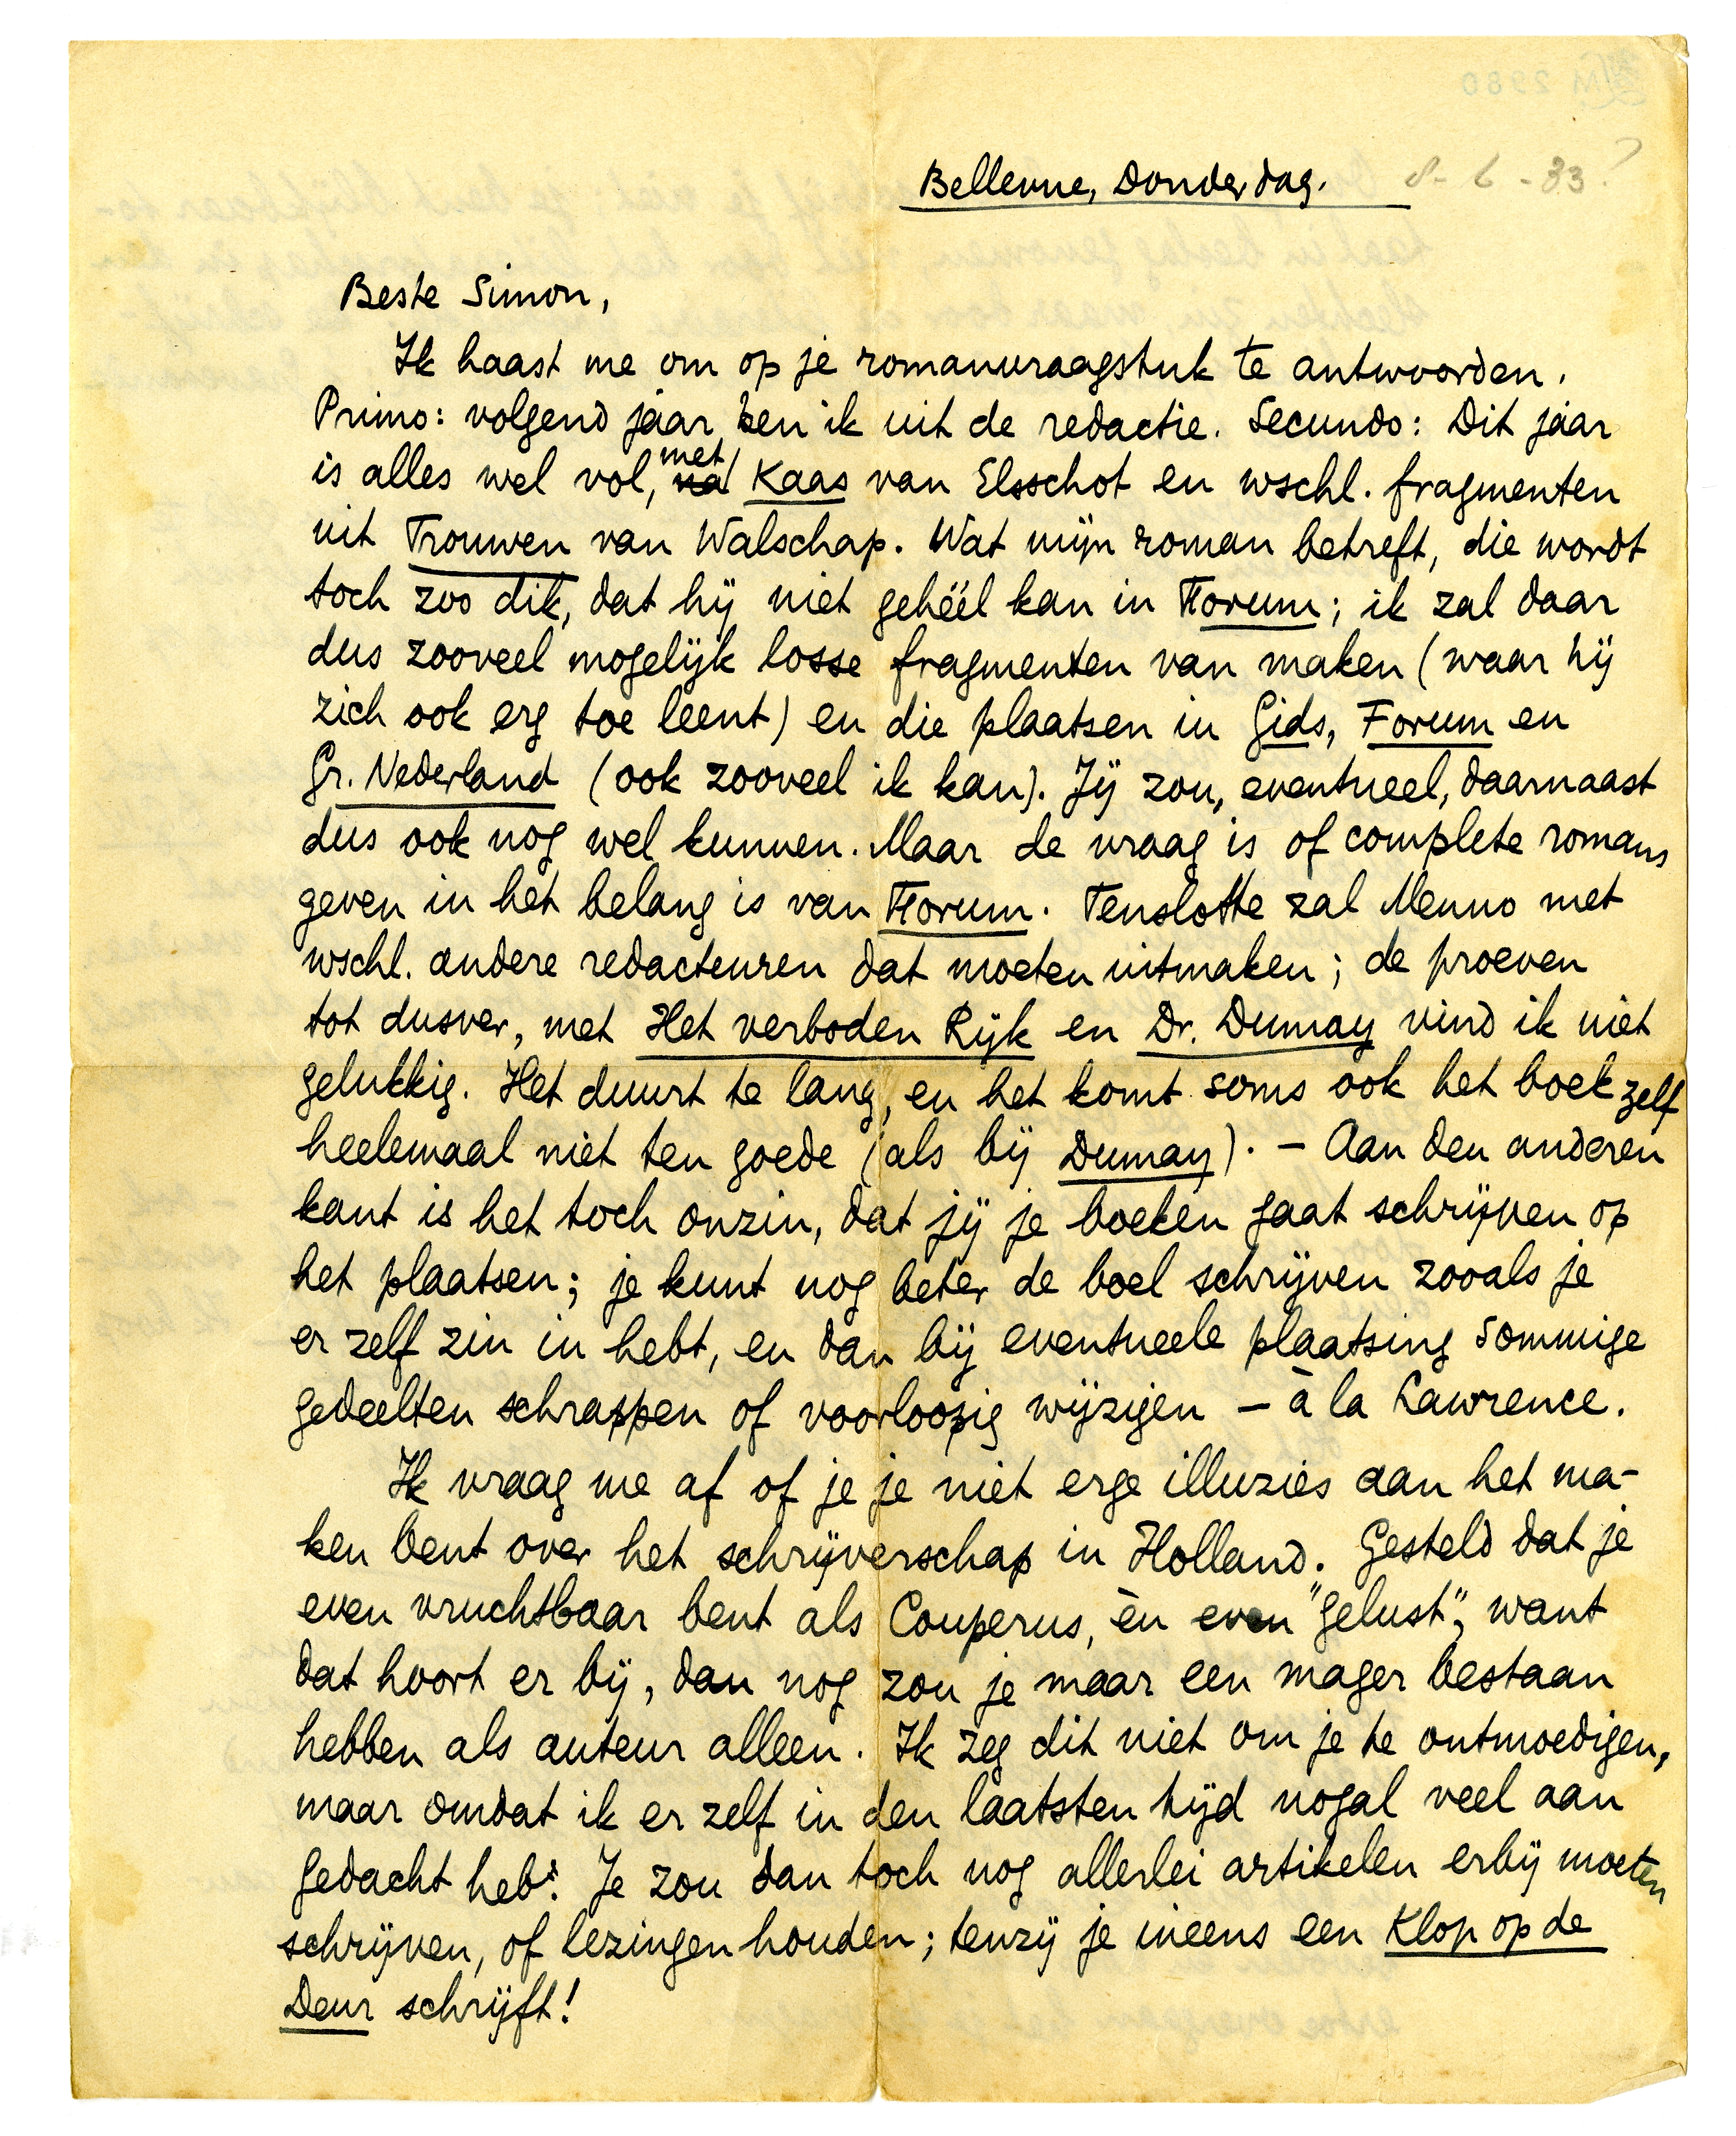 Bellevue, Donderdag. 8-6-33?
Beste Simon,
Ik haast me om op je romanvraagstuk te antwoorden.
Primo: volgend jaar ben ik uit de redactie. Secundo: Dit jaar
is alles wel vol, na met Kaas van Elsschot en wschl. fragmenten
uit Trouwen van Walschap. Wat mijn roman betreft, die wordt
toch zoo dik, dat hij niet gehéél kan in Forum; ik zal daar
dus zooveel mogelijk losse fragmenten van maken (waar hij
zich ook erg toe leent) en die plaatsen in Gids, Forum en
Gr. Nederland (ook zooveel ik kan). Jij zou, eventueel, daarnaast
dus ook nog wel kunnen. Maar de vraag is of complete romans
geven in het belang is van Forum. Tenslotte zal Menno met
wschl. andere redacteuren dat moeten uitmaken; de proeven
tot dusver, met Het verboden Rijk en Dr. Dumay vind ik niet
gelukkig. Het duurt te lang, en het komt soms ook het boek zelf
heelemaal niet ten goede (als bij Dumay). – Aan den anderen
kant is het toch onzin, dat jij je boeken gaat schrijven op
het plaatsen; je kunt nog beter de boel schrijven zooals je
er zelf zin in hebt, en dan bij eventueele plaatsing sommige
gedeelten schrappen of voorloopig wijzigen – à la Lawrence.
Ik vraag me af of je je niet erge illuzies aan het ma-
ken bent over het schrijverschap in Holland. Gesteld dat je
even vruchtbaar bent als Couperus, èn even "gelust", want
dat hoort er bij, dan nog zou je maar een mager bestaan
hebben als auteur alleen. Ik zeg dit niet om je te ontmoedigen,
maar omdat ik er zelf in den laatsten tijd nogal veel aan
gedacht heb. Je zou dan toch nog allerlei artikelen erbij moeten
schrijven, of lezingen houden; tenzij je ineens een Klop op de
Deur schrijft!